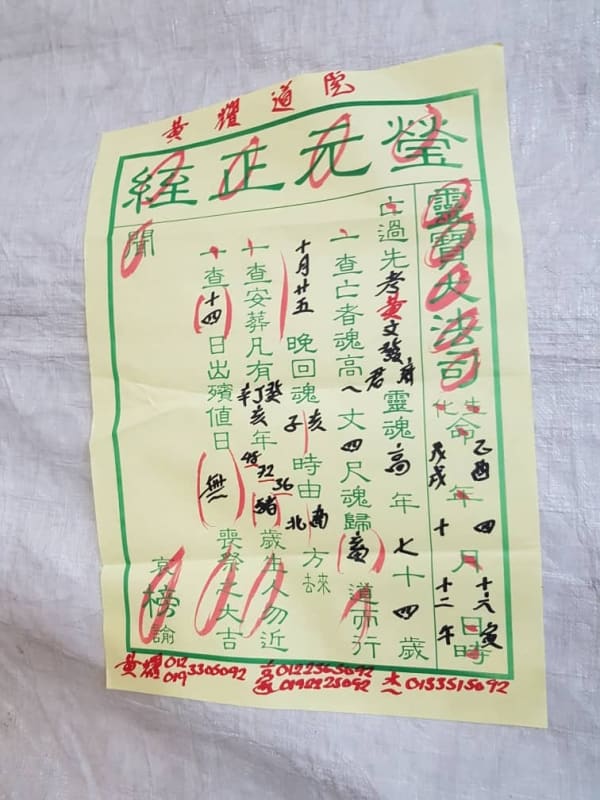 黄耀道院
瑩元正經
靈寶大法司
生 乙酉 年 四 月 十六 日 寅 時
化 命 戊戌 十 十二 午
亡過先考黄文發府君靈魂高年七十四歲
一查亡者魂高八丈四尺魂歸 道而行
十月廿五晚回魂子亥時由南北方去來
一查安葬凡有癸丁辛亥年 48 72 36 猪歲生人勿近
一查十四日出殯值日無喪祭之大吉
聞
榜諭
黄耀 012 0193305092
0122565092 0192225092
杰 0135515092